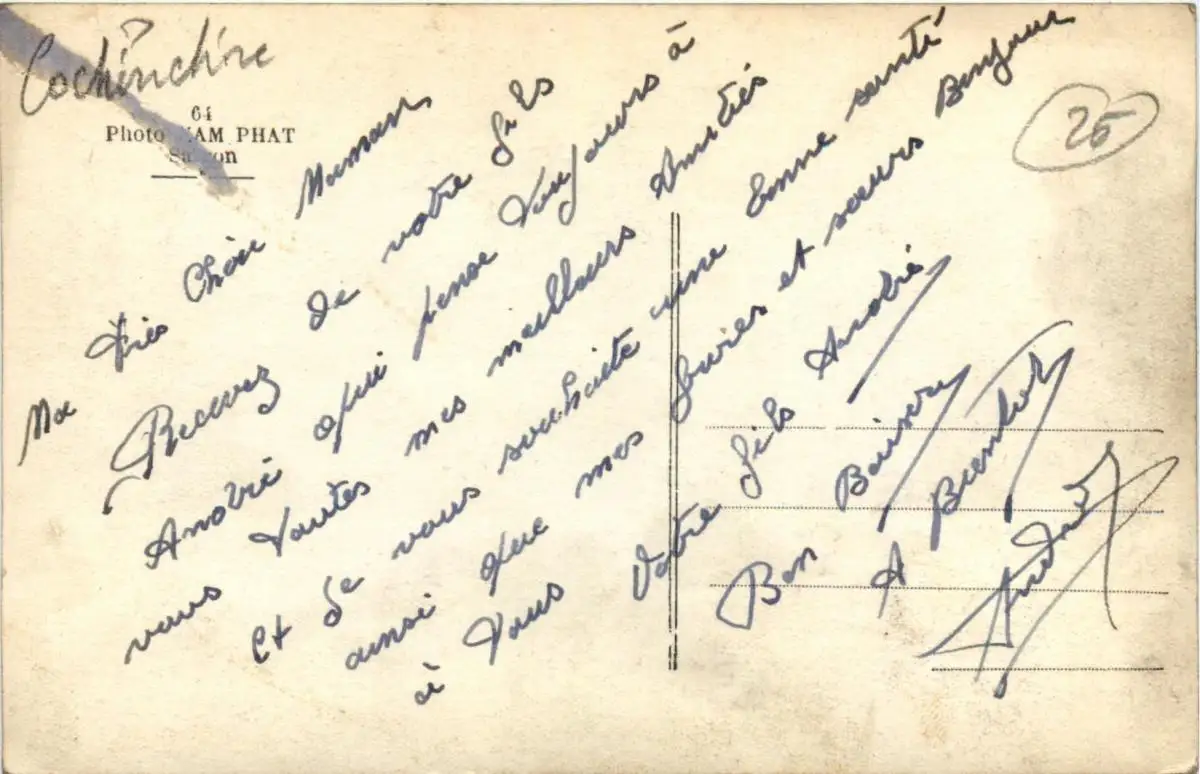 Cochinchine
64
Photo NAM PHAT
Saigon
25
Ma très Chère Maman
Recevez de votre fils
André qui pense toujours à
vous toutes mes meilleurs Amitiés
et de vous souhaité une bonne santé
ainsi que mes frères et sœurs Bonjour
à Tous Votre fils André
Bon Baisers
A Bientot
André